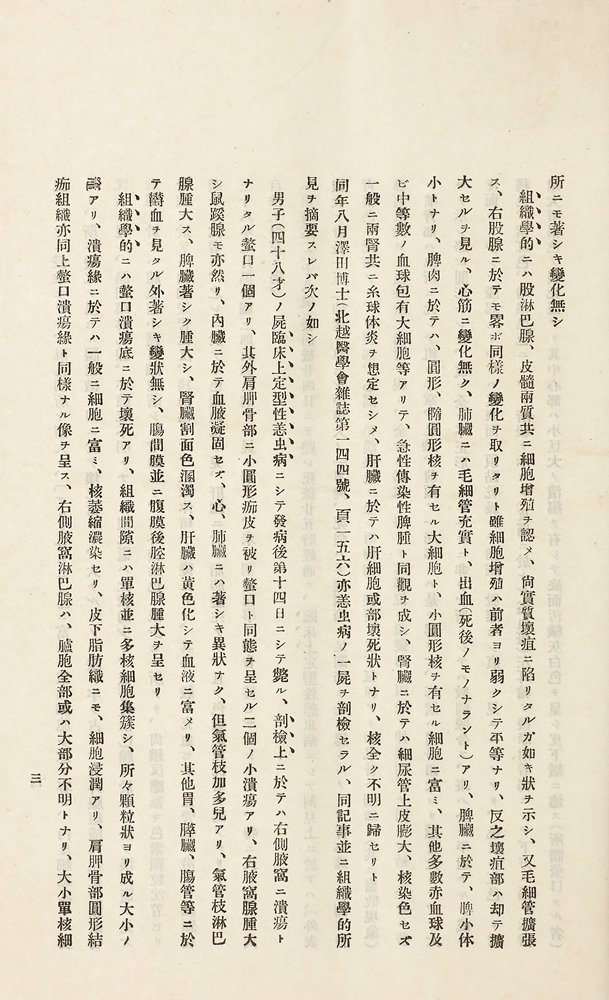 所ニモ著シキ變化無シ
組織學的ニハ股淋巴腺、皮髓兩質共ニ細胞增殖ヲ認メ、尙實質壞疽ニ陷リタルガ如キ狀ヲ示シ、又毛細管擴張
ス、右股腺ニ於テモ畧ボ同樣ノ變化ヲ取リタリト雖細胞增殖ハ前者ヨリ弱クシテ平等ナリ、反之壞疽部ハ却テ擴
大セルヲ見ル、心筋ニ變化無ク、肺臟ニハ毛細管充實ト、出血(死後ノモノナラント)アリ、脾臟ニ於テ、脾小体
小トナリ、脾肉ニ於テハ、圓形、橢圓形核ヲ有セル大細胞ト、小圓形核ヲ有セル細胞ニ富ミ、其他多數赤血球及
ビ中等數ノ血球包有大細胞等アリテ、急性傳染性脾腫ト同觀ヲ成シ、腎臟ニ於テハ細尿管上皮膨大、核染色セズ
一般ニ兩腎共ニ糸球体炎ヲ想定セシメ、肝臟ニ於テハ肝細胞或部壞死狀トナリ、核全ク不明ニ歸セリト
同年八月澤田博士(北越醫學會雜誌第一四四號、頁一五六)亦恙虫病ノ一屍ヲ剖檢セラル、同記事並ニ組織學的所
見ヲ摘要スレバ次ノ如シ
男子(四十八才)ノ屍臨床上定型性恙虫病ニシテ發病後第十四日ニシテ斃ル、剖檢上ニ於テハ右側腋窩ニ潰瘍ト
ナリタル螫口一個アリ、其外肩胛骨部ニ小圓形痂皮ヲ被リ螫口ト同態ヲ呈セル二個ノ小潰瘍アリ、右腋窩腺腫大
シ鼠蹊腺モ亦然リ、內臟ニ於テ血液凝固セズ、心、肺臟ニハ著シキ異狀ナク、但氣管枝加多兒アリ、氣管枝淋巴
腺腫大ス、脾臟著シク腫大シ、腎臟割面色溷濁ス、肝臟ハ黃色化シテ血液ニ富メリ、其他胃、膵臟、膓管等ニ於
テ欝血ヲ見タル外著シキ變狀無シ、膓間膜並ニ腹膜後腔淋巴腺腫大ヲ呈セリ
組織學的ニハ螫口潰瘍底ニ於テ壞死アリ、組織間隙ニハ單核並ニ多核細胞集簇シ、所々顆粒狀ヨリ成ル大小ノ
アリ、潰瘍緣ニ於テハ一般ニ細胞ニ富ミ、核萎縮濃染セリ、皮下脂肪織ニモ、細胞浸潤アリ、肩胛骨部圓形結
痂組織亦同上螫口潰瘍緣ト同樣ナル像ヲ呈ス、右側腋窩淋巴腺ハ、臚胞全部或ハ大部分不明トナリ、大小單核細
三